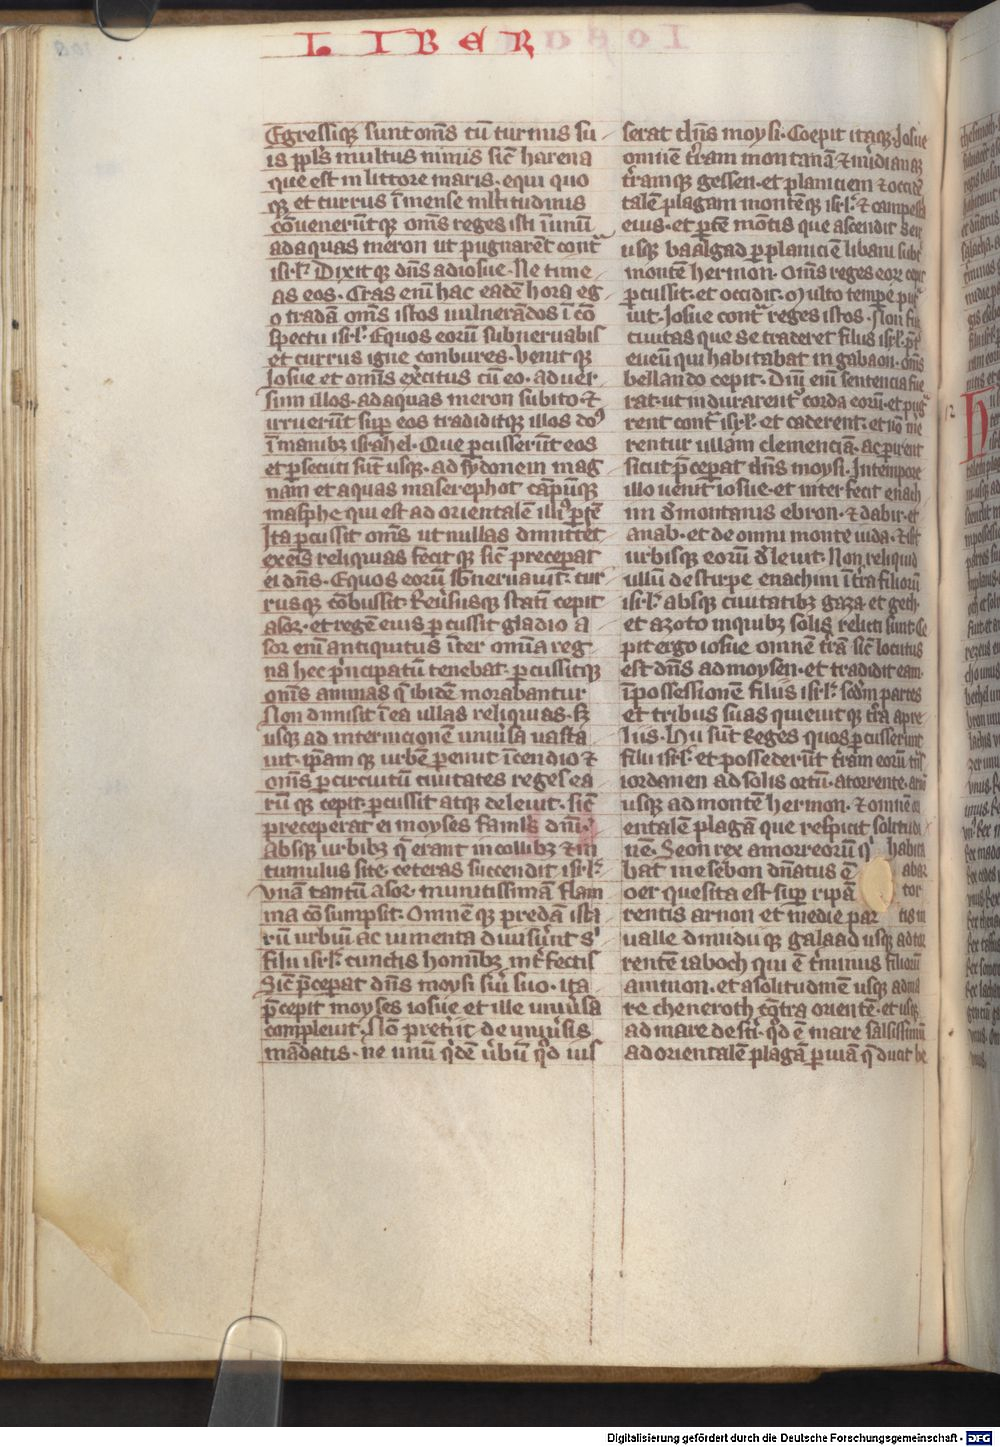 LIBER
Egressiq₃ sunt om̄s cū turmis su
is ppl̄s multus nimis sic̄ harena
que est in littore maris. equi quo
q₃ et currus īmense ml̄titudinis
cōuenerūt q₃ om̄s reges isti ī unū
ad aquas meron ut pugnarēt contᷓ
isrl̄. Dixit q₃ dn̄s ad iosue. Ne time
as eos. Cras eni hac eadē hora eg
o tradā om̄s istos uulnerādos ī cō
spectu isrl̄. Equos eorū subneruabis
et currus igne conbures. Venit q₃
Iosue et om̄is exc̄itus cū eo. aduer
sum illos. ad aquas meron subito ⁊
irruerūt sup̄ eos tradiditq₃ illos do⁹
ī manib₃ israhel. Que ꝑcusserūt eos
et ꝑsecuti sūt usq₃ ad sydonem mag
nam et aquas maserephot cāpūq₃
masphe qui est ad orientalē illi⁹ ꝑtē
Ita ꝑcussit om̄s ut nullas dimittēt
ex eis reliquias fecit q₃ sic̄ preceperat
ei dn̄s. Equos eorū sb̄neruauit. cur
rusq₃ cōbussit. Reūsusq₃ statī cepit
asor. et regē eius ꝑcussit gladio a
sor eni antiquitus īter om̄ia reg
na hec pⁱncipatū tenebat. ꝑcussitq₃
om̄s animas q̄ ibidē morabantur
Non dimisit ī ea ullas reliquias. s₃
usq₃ ad internicionē uniūsa uasta
uit. ip̄am q₃ urbē ꝑemit īcendio ⁊
om̄s ꝑ circuitū ciuitates reges ea
rū q₃ cepit. ꝑcussit atq₃ deleuit. sic̄
preceperat ei moyses famul̄s dn̄i.
Absq₃ urbib₃ q̄ erant in collib₃ ⁊ in
tumulis site. ceteras succendit isrl̄.
Vnā tantū asor. munitissimā flam
ma cōsumpsit. Omnē q₃ predā ista
rū urbiū ac iumenta diuisūt s'
filii isrl̄. cunctis homīb₃ int̄fectis
Sic̄ p̄ceperat dn̄s moysi sūo suo. ita
p̄cepit moyses iosue et ille uniūsa
compleuit. Nō pret̄iit de uniūsis
mādatis. ne unū qⁱdē ūbū qͦd ius
serat dn̄s moysi. Coepit itaq₃ Iosue
omnē tr̄am montanā ⁊ m̄idianaꝫ
tr̄amq₃ gessen. et planiciem ⁊ occidē
talē plagam montēq₃ isrl̄. ⁊ campestᵃ
eius. et ꝑtē mōtis que ascendit Seir
usq₃ baalgad ꝑ planiciē libani subt̄
montē hermon. Om̄s reges eorꝫ cepit
ꝑcussit. et occidit. Multo tempe pug
uit. Iosue contᷓ reges istos. Non fuit
ciuitas que se traderet filiis isrl̄. p̄t̄
eueū qui habitabat in gabaon. om̄s
bellando cepit. Dn̄i eni sentencia fue
rat. ut indurarentᷓ corda eorū. et pugᷓ
rent contᷓ isrl̄. et caderent. et nō me
rentur ullam clemenciā. ac ꝑirent
sicut p̄ceperat dn̄s moysi. In tempore
illo uenit iosue. et interfecit enach
im d' montanis ebron. ⁊ dabir. et
anab. et de omni monte iuda. ⁊ isrl̄
urbisq₃ eorū d'leuit. Non reliquid
ullū de stirpe enachim ī tr̄a filiorū
isrl̄. absq₃ ciuitatib₃ gaza. et geth.
et azoto in quib₃ solis relicti sunt. Ce
pit ergo iosue omnē tr̄ā sic̄ locutus
est dn̄s ad moysen. et tradidit eam
ī possessionē filiis isrl̄. scd̄m partes
et tribus suas quieuit q₃ tr̄a a pre
liis. Hii sūt Reges quos ꝑcusserunt
filii isrl̄. et possederūt tr̄am eorū tⁿs
iordanen ad solis ortū. a torrente. arnō
usq₃ ad montē hermon. ⁊ omnē ori
entalē plagā que respicit solitudi
nē. Seon rex amorreorū qⁱ habita
bat in esebon dn̄atus ē abar
oer que sita est sup̄ ripā tor
rentis arnon et medie par tis in
ualle dimidiiq₃ galaad usq₃ ad tor
rentē iaboch qui ē t̄minus filiorū
ammon. et a solitudinē usq₃ ad ma
re cheneroth cōtra orientē. et usq₃
ad mare desti. qͦd ē mare salsissimū
ad orientalē plagā ꝑ uiā q̄ ducit be
Digitalisierung gefördert durch die Deutsche Forschungsgemeinschaft - DFG